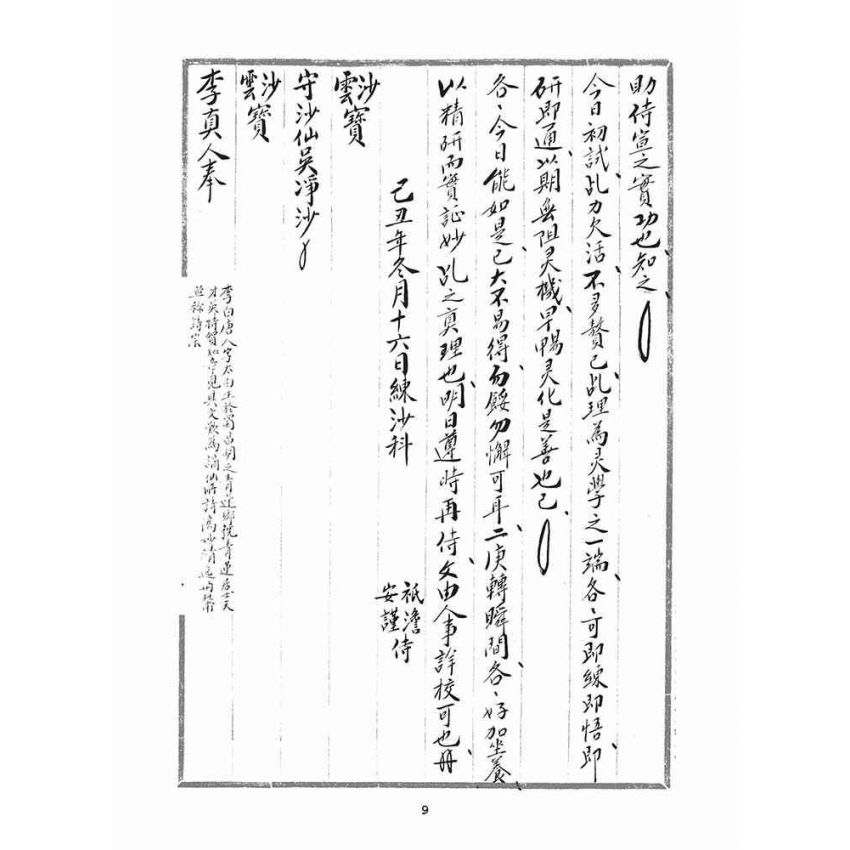 助侍宣之實功也、知之
今日初試、乩力欠活、不多贅已、乩理為灵學之一端、各、可即練即悟、即
研即通、以期無阻灵機、早暢灵化是善也已、
各、今日能如是、已大不易得、勿餒勿懈可耳、二庚轉瞬間、各、好加坐養
以精研而實証妙乩之真理也、明日遵時再侍、文由人事詳校可也、毌
己丑年冬月十六日練沙科
祇澹
安謹侍
沙
雲寶
守沙仙吳凈沙
沙
雲寶
李真人奉
李白唐人字太白生於蜀昌明之青蓮鄉號青蓮居士天
才英特賀知章見其文嘆為謫仙所詩高妙清逸
並称詩宗
9